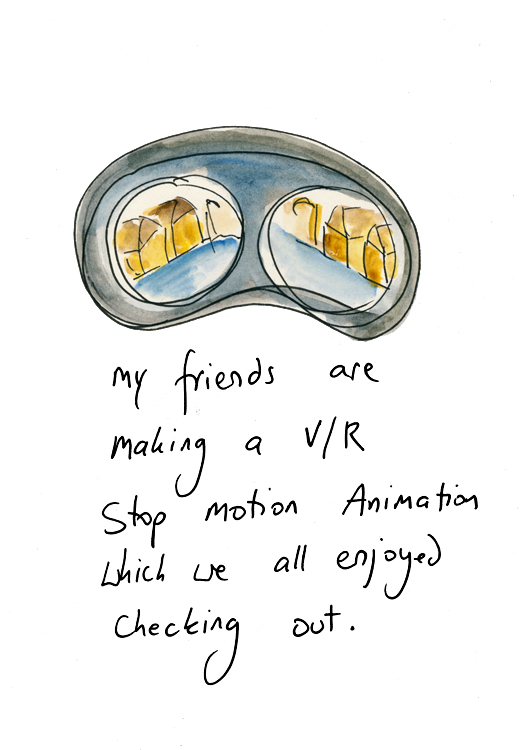 my friends are
making a V/R
Stop motion Animation
which we all enjoyed
checking out.